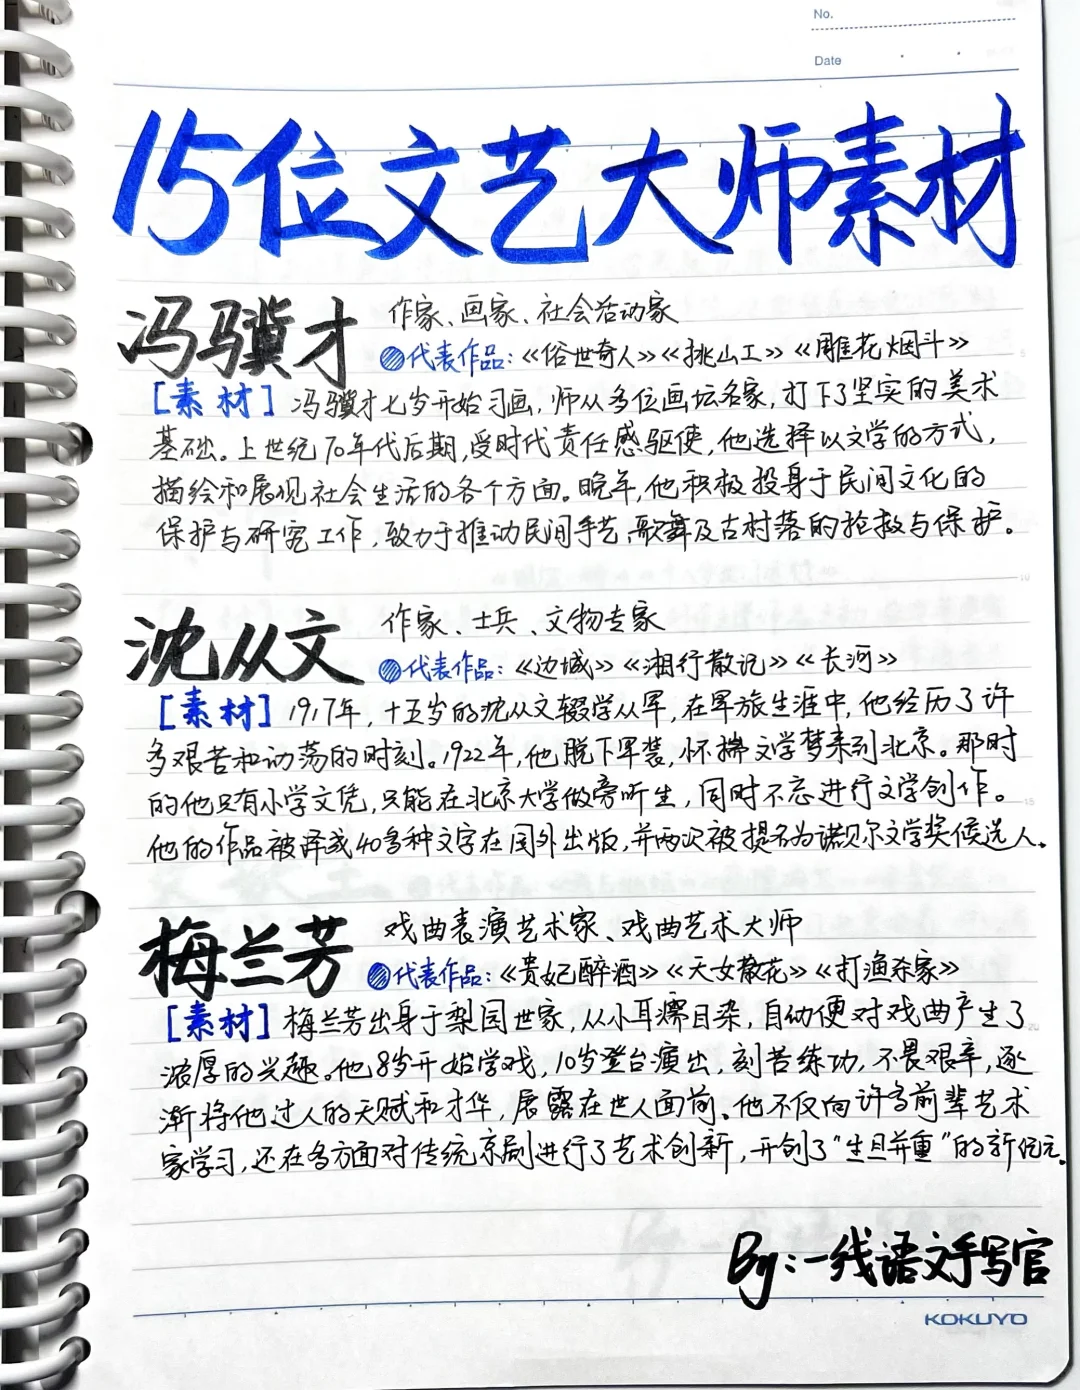 No.
Date
15位文艺大师素材
冯骥才
作家、画家、社会活动家
代表作品:《俗世奇人》《挑山工》《雕花烟斗》
[素材] 冯骥才七岁开始习画,师从多位画坛名家,打下了坚实的美术
基础。上世纪70年代后期,受时代责任感驱使,他选择以文学的方式,
描绘和展现社会生活的各个方面。晚年,他积极投身于民间文化的
保护与研究工作,致力于推动民间手艺、歌舞及古村落的抢救与保护。
沈从文
作家、士兵、文物专家
代表作品:《边城》《湘行散记》《长河》
[素材] 1917年,十五岁的沈从文辍学从军,在军旅生涯中,他经历了许
多艰苦和动荡的时刻。1922年,他脱下军装,怀揣文学梦来到北京。那时
的他只有小学文凭,只能在北京大学做旁听生,同时不忘进行文学创作。
他的作品被译成40多种文字在国外出版,并两次被提名为诺贝尔文学奖候选人。
梅兰芳
戏曲表演艺术家、戏曲艺术大师
代表作品:《贵妃醉酒》《天女散花》《打渔杀家》
[素材] 梅兰芳出身于梨园世家,从小耳濡目染,自幼便对戏曲产生了
浓厚的兴趣。他8岁开始学戏,10岁登台演出,刻苦练功,不畏艰辛,逐
渐将他过人的天赋和才华,展露在世人面前。他不仅向许多前辈艺术
家学习,还在多方面对传统京剧进行了艺术创新,开创了"生旦并重"的新纪元。
By:一线语文手写官
KOKUYO